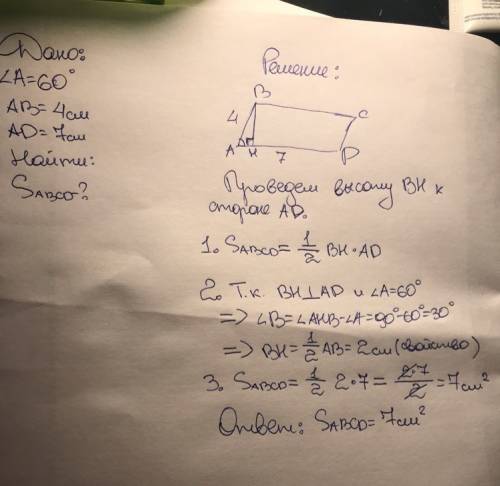 Дано:
∠A=60°
AB=4см
AD=7см
Найти:
SABCD-?
Решение:
B
4
C
A
H
7
D
Проведем высоту BH к
стороне AD.
1. SABCD= 1/2 BH·AD
2. Т.к. BH⊥AD и ∠A=60°
=> ∠B=∠AHB-∠A=90°-60°=30°
=> BH= 1/2 AB=2см(свойство)
3. SABCD= 1/2 2·7= 2·7/2 =7см²
Ответ: SABCD=7см²